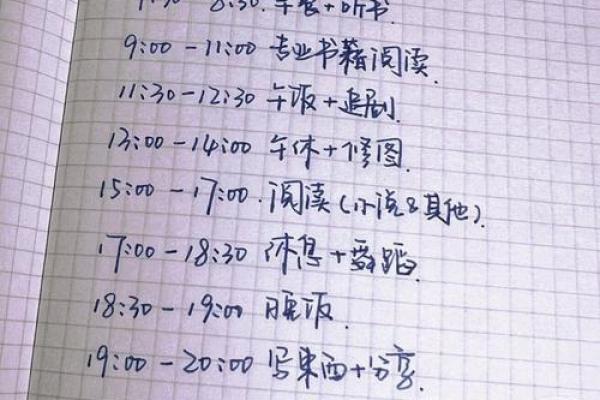 8:30. 早餐+听书.
9:00-11:00 专业书籍阅读.
11:30-12:30 午饭+追剧.
13:00-14:00 午休+修图.
15:00-17:00. 阅读(小说&其他).
17:00-18:30 休息+舞蹈.
18:30-19:00 晚饭.
19:00-20:00 写東西+分享.